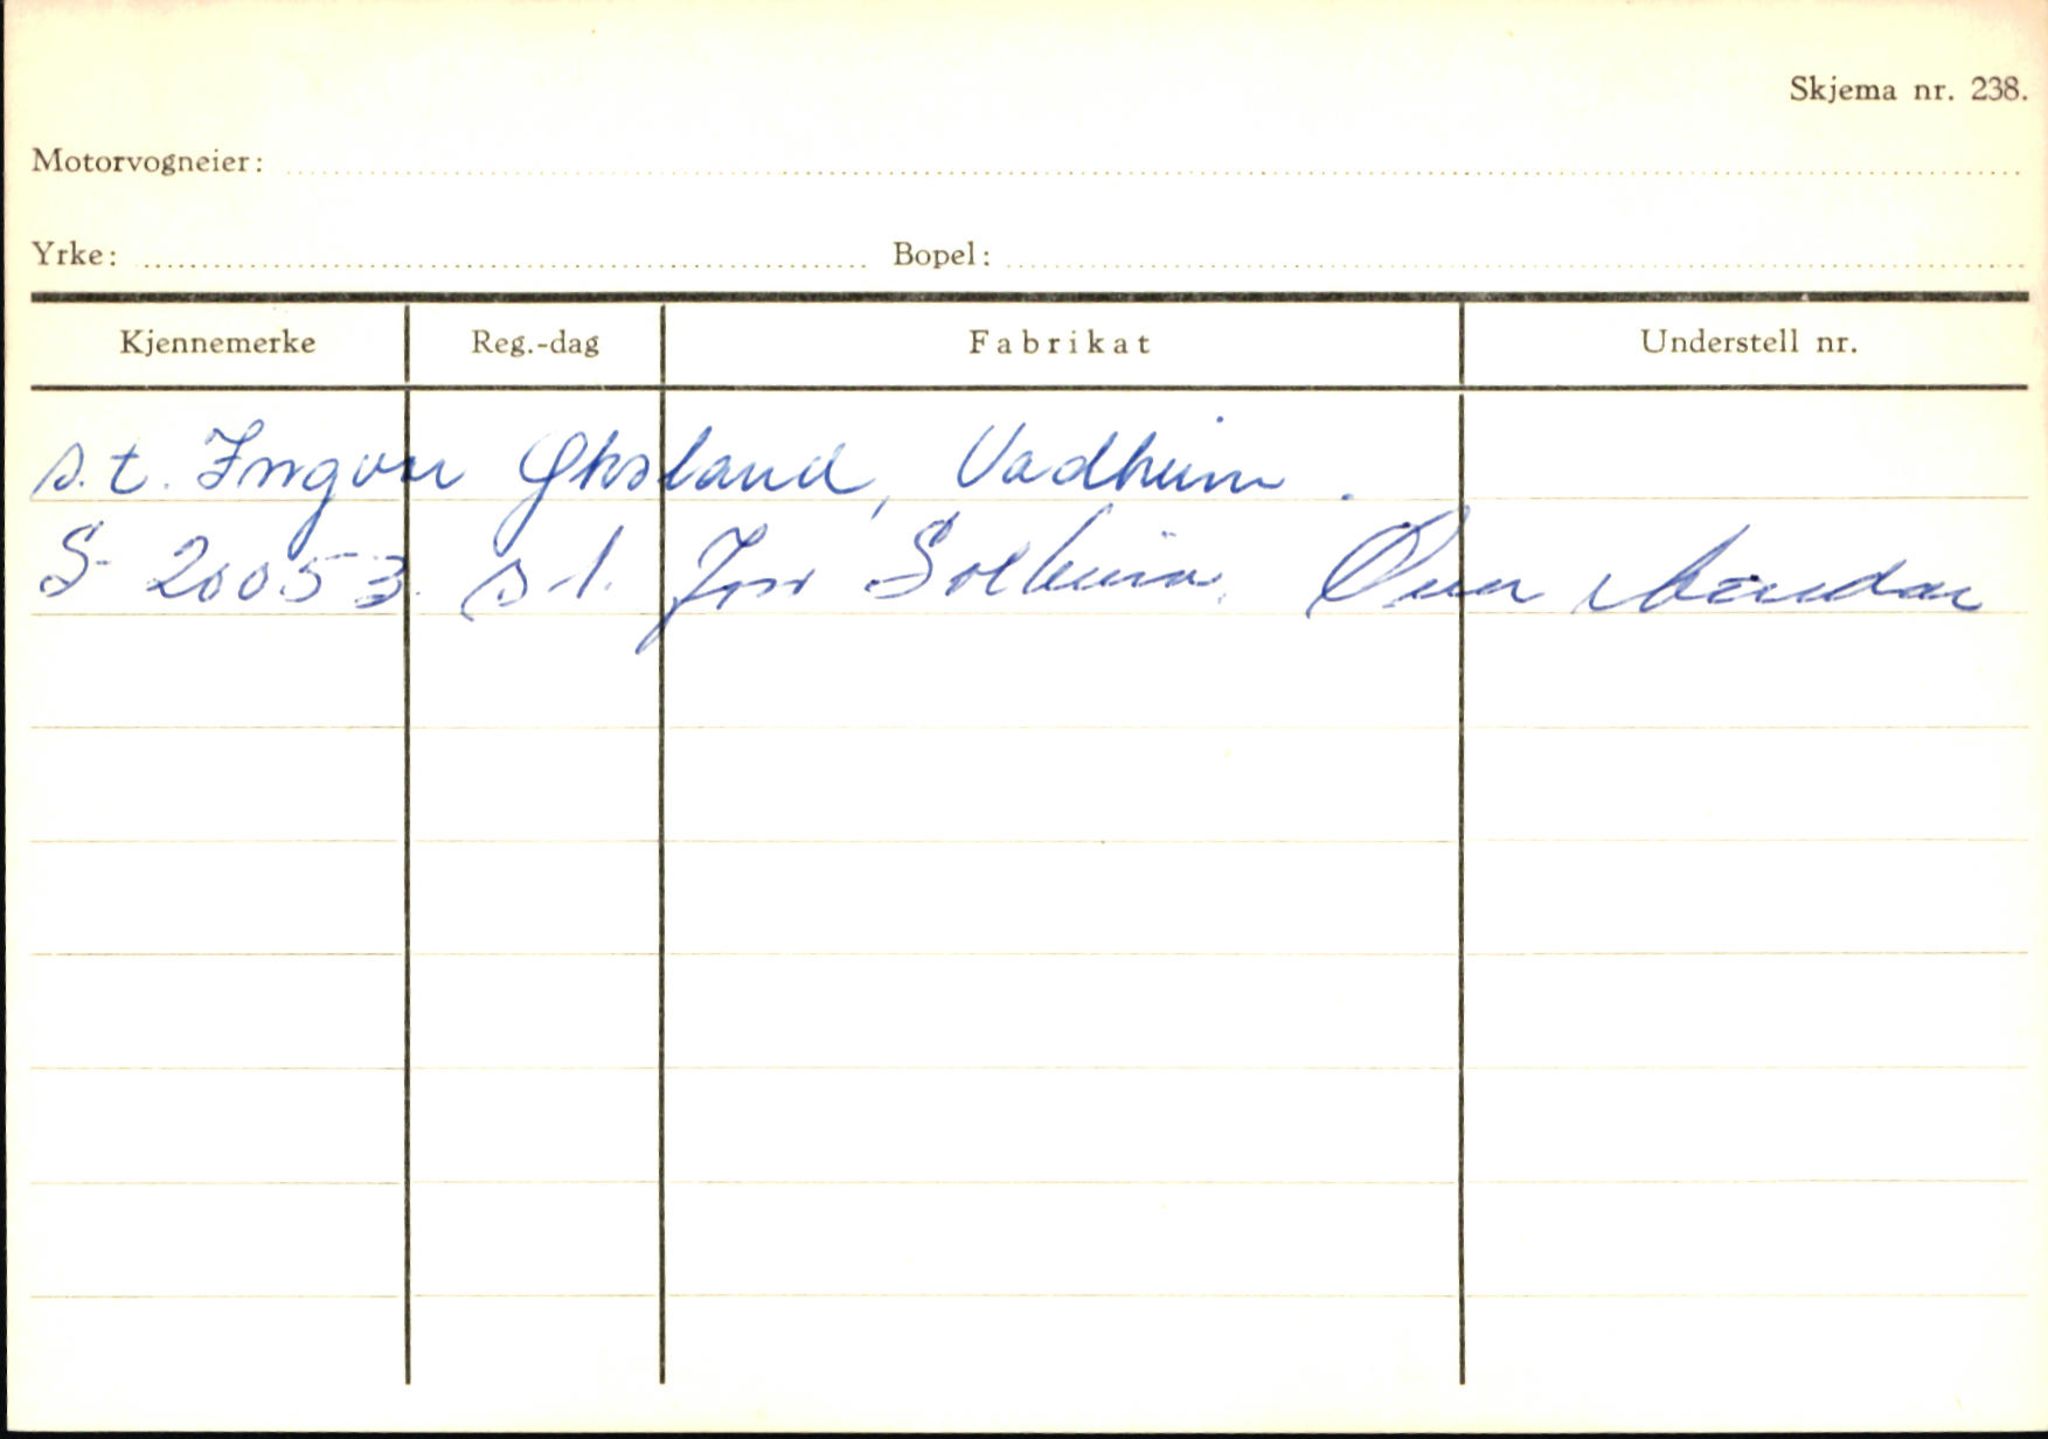 Skjema nr. 238.
Motorvogneier:
Yrke: Bopel:
Kjennemerke Reg.-dag Fabrikat Understell nr.
s.t. Ingvar Øksland, Vadheim.
S-20053. s.t. Solheim. Øvre Årdal